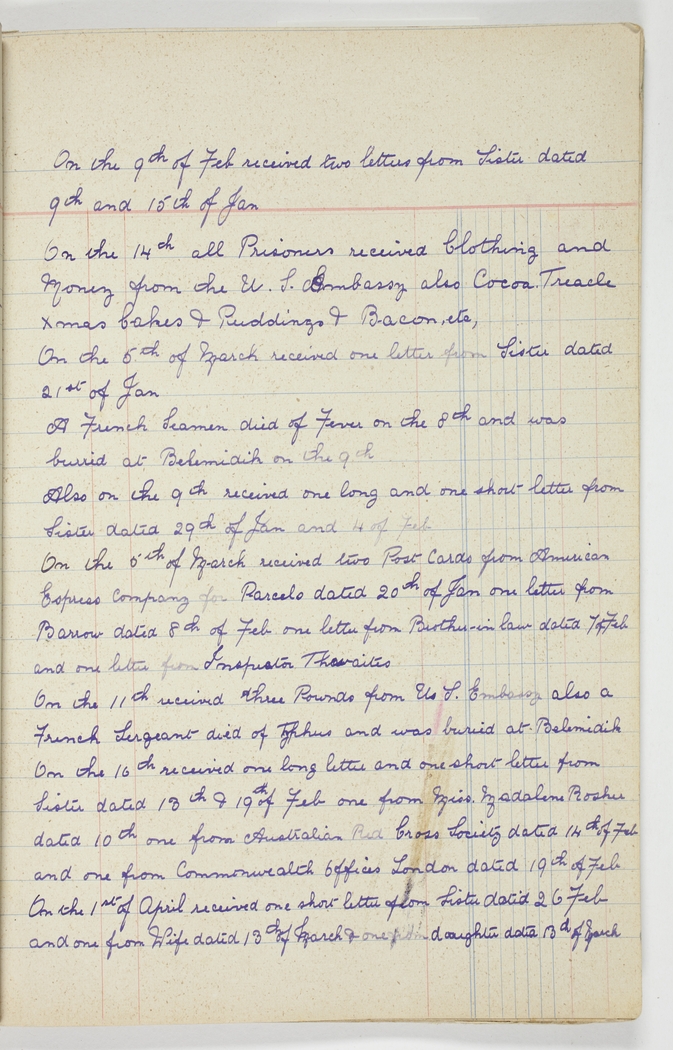 On the 9th of Feb received two letters from Sister dated
9th and 15th of Jan
On the 14th all Prisoners received Clothing and
Money from the U. S. Embassy also Cocoa. Treacle
Xmas Cakes & Puddings & Bacon, etc,
On the 5th of March received one letter from Sister dated
21st of Jan
A French Seamen died of Fever on the 8th and was
burrid at Belemidik on the 9th
Also on the 9th received one long and one short letter from
Sister dated 29th of Jan and 4 of Feb
On the 5th of March received two Post Cards from American
Espress Company for Parcels dated 20th of Jan one letter from
Barrow dated 8th of Feb one letter from Brother-in law dated 7 of Feb
and one letter from Inspector Thwaites
On the 11th received three Pounds from Us S. Embassy also a
French Sergeant died of Typhus and was buried at Belemidik
On the 16th received one long letter and one short letter from
Sister dated 13th & 19th of Feb one from Miss. Madalene
dated 10th one from Australian Red Cross Society dated 14th of Feb
and one from Commonwealth Offices London dated 19th of Feb
On the 1st of April received one short letter from Sister dated 26 Feb
and one from Wife dated 13th of March & one from daughter dated 13d of March